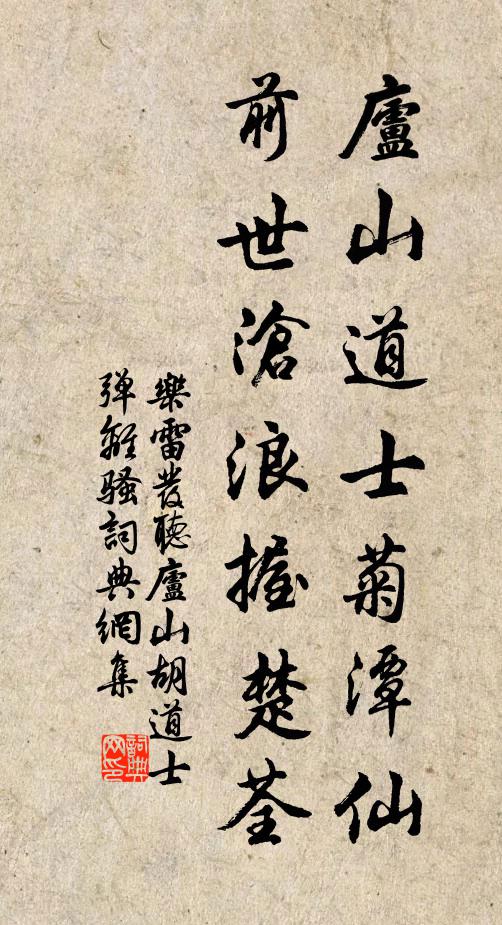 廬山道士菊潭仙
前世滄浪握楚荃
樂雷發聽廬山胡道士
彈離騷詞典網集
詞典
网印